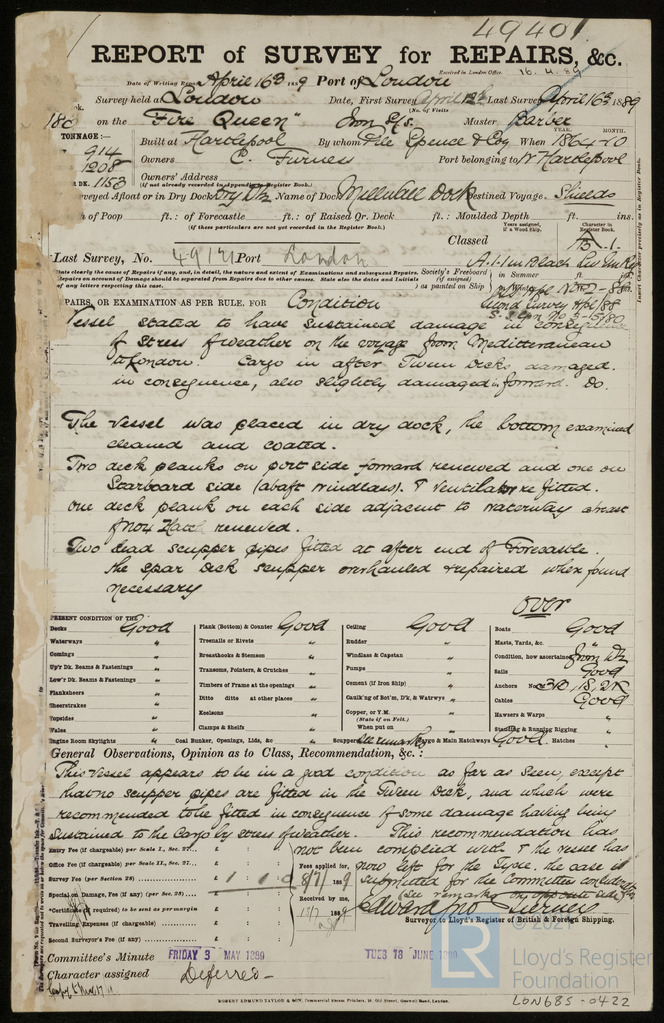 49401
REPORT of SURVEY for REPAIRS, &c.
Received in London Office. 16.4.89
Date of Writing Report April 16th 1889 Port of London
Survey held at London Date, First Survey April 12th Last Survey April 16th 1889
(No. of Visits
on the "Fire Queen" Iron S/s. Master Barber
TONNAGE:— Built at Hartlepool By whom Pile Spence & Coy When 1864
YEAR. MONTH.
914
1208 Owners C. Furness Port belonging to W Hartlepool
DK. 1153 Owners' Address
(if not already recorded in Appendix to Register Book.)
Surveyed Afloat or in Dry Dock Dry Dk Name of Dock Millwall Dock Destined Voyage Shields
of Poop ft.: of Forecastle ft.: of Raised Qr. Deck ft.: Moulded Depth ft. ins.
(if these particulars are not yet recorded in the Register Book.)
Classed A.1.
Character in Register Book.
Last Survey, No. 49171 Port London
Society's Freeboard (if assigned) as painted on Ship in Summer ft.
REPAIRS, OR EXAMINATION AS PER RULE, FOR Condition
Vessel stated to have sustained damage in consequence
of stress of weather on the voyage from Mediterranean
to London. Cargo in after Tween Decks damaged
in consequence, also slightly damaged in forward Do.
The vessel was placed in dry dock, the bottom examined
cleaned and coated.
Two deck planks on port side forward renewed and one on
Starboard side (abaft windlass). & Ventilator re fitted.
One deck plank on each side adjacent to waterway abreast
of No 4 Hatch renewed.
Two lead scupper pipes fitted at after end of Forecastle.
The spar Deck scupper overhauled & repaired where found
necessary
over
PRESENT CONDITION OF THE
Decks Good
Waterways "
Comings "
Up'r Dk. Beams & Fastenings "
Low'r Dk. Beams & Fastenings "
Planksheers "
Sheerstrakes "
Topsides "
Wales "
Engine Room Skylights "
Plank (Bottom) & Counter Good
Treenails or Rivets "
Breasthooks & Stemson "
Transoms, Pointers, & Crutches "
Timbers of Frame at the openings "
Ditto ditto at other places "
Keelsons "
Clamps & Shelfs "
Coal Bunker, Openings, Lids, &c "
Ceiling Good
Rudder "
Windlass & Capstan "
Pumps "
Cement (if Iron Ship) "
Caulk'ng of Bot'm, D'k, & Watrwys "
Copper, or Y.M. (State if on Felt.)
When put on
Scuppers See remarks Cargo & Main Hatchways Good Hatches "
Boats Good
Masts, Yards, &c. "
Condition, how ascertained from Dk
Sails Good
Anchors No 3B, 1S, 2K
Cables Good
Hawsers & Warps "
Standing & Running Rigging "
General Observations, Opinion as to Class, Recommendation, &c.:
This vessel appears to be in a good condition as far as seen, except
that no scupper pipes are fitted in the Tween Deck, and which were
recommended to be fitted in consequence of some damage having been
sustained to the Cargo by stress of weather. This recommendation has
not been complied with & the vessel has
now left for the Tyne. the case is
submitted for the Committee's consideration
(See remarks on opposite side)
Entry Fee (if chargeable) per Scale I., Sec. 27... £ : :
Office Fee (if chargeable) per Scale II., Sec. 27... £ : :
Survey Fee (per Section 28) £ 1 : 1 : 0
Special or Damage, Fee (if any) (per Sec. 28) £ : :
*Certificate (if required) to be sent as per margin
Travelling Expenses (if chargeable) £ : :
Second Surveyor's Fee (if any) £ : :
Fees applied for,
8/7/1889
Received by me,
1889
Edward Jno Turner
Surveyor to Lloyd's Register of British & Foreign Shipping.
Committee's Minute FRIDAY 3 MAY 1889 TUES 18 JUNE 1889
Character assigned Deferred
ROBERT EDMUND TAYLOR & SON, Commercial Steam Printers, 19, Old Street, Goswell Road, London.
LR
Lloyd's Register
Foundation
LON685-0422